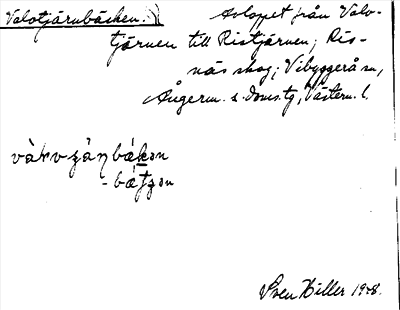 Valotjärnbäcken. Avlopet från Valo-
tjärnen till Ristjärnen; Ris-
näs skog; Vibyggerå sn,
Ångerm. s. doms.tg, Västern. l.
-bátzən
Sven Hiller 1948.